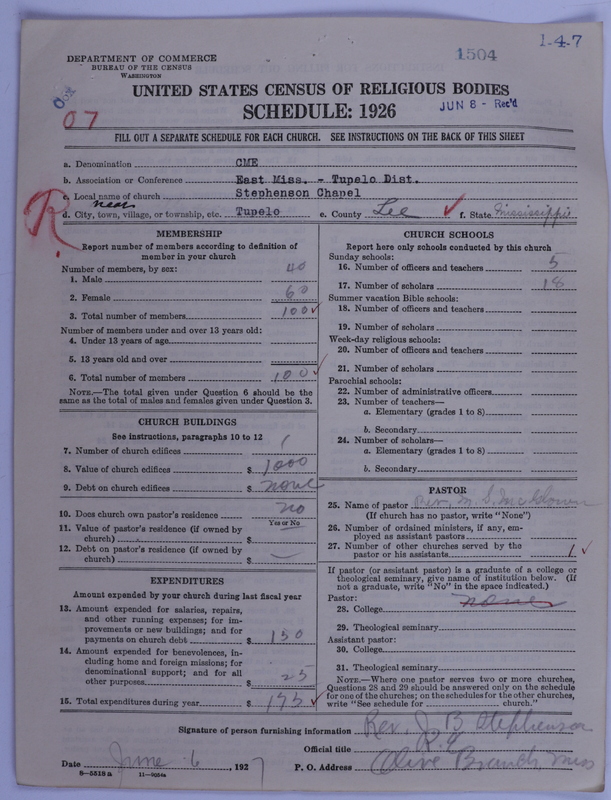 1-4-7
1504
DEPARTMENT OF COMMERCE
BUREAU OF THE CENSUS
WASHINGTON
07
UNITED STATES CENSUS OF RELIGIOUS BODIES
SCHEDULE: 1926
JUN 8 - Rec'd
FILL OUT A SEPARATE SCHEDULE FOR EACH CHURCH. SEE INSTRUCTIONS ON THE BACK OF THIS SHEET
a. Denomination CME
b. Association or Conference East Miss. - Tupelo Dist.
c. Local name of church Stephenson Chapel
near
d. City, town, village, or township, etc. Tupelo e. County Lee f. State Mississippi
R.
MEMBERSHIP
Report number of members according to definition of
member in your church
Number of members, by sex:
1. Male 40
2. Female 60
3. Total number of members 100
Number of members under and over 13 years old:
4. Under 13 years of age
5. 13 years old and over
6. Total number of members 100
NOTE.—The total given under Question 6 should be the
same as the total of males and females given under Question 3.
CHURCH BUILDINGS
See instructions, paragraphs 10 to 12
7. Number of church edifices 1
8. Value of church edifices $ 1000
9. Debt on church edifices $ none
10. Does church own pastor's residence no
Yes or No
11. Value of pastor's residence (if owned by
church) $
12. Debt on pastor's residence (if owned by
church) $
EXPENDITURES
Amount expended by your church during last fiscal year
13. Amount expended for salaries, repairs,
and other running expenses; for im-
provements or new buildings; and for
payments on church debt $ 150
14. Amount expended for benevolences, in-
cluding home and foreign missions; for
denominational support; and for all
other purposes $ 25
15. Total expenditures during year $ 175
CHURCH SCHOOLS
Report here only schools conducted by this church
Sunday schools:
16. Number of officers and teachers 5
17. Number of scholars 18
Summer vacation Bible schools:
18. Number of officers and teachers
19. Number of scholars
Week-day religious schools:
20. Number of officers and teachers
21. Number of scholars
Parochial schools:
22. Number of administrative officers
23. Number of teachers—
a. Elementary (grades 1 to 8)
b. Secondary
24. Number of scholars—
a. Elementary (grades 1 to 8)
b. Secondary
PASTOR
25. Name of pastor Rev. M. S.
(If church has no pastor, write "None")
26. Number of ordained ministers, if any, em-
ployed as assistant pastors
27. Number of other churches served by the
pastor or his assistants 1
If pastor (or assistant pastor) is a graduate of a college or
theological seminary, give name of institution below. (If
not a graduate, write "No" in the space indicated.)
Pastor:
28. College none
29. Theological seminary
Assistant pastor:
30. College
31. Theological seminary
NOTE.—Where one pastor serves two or more churches,
Questions 28 and 29 should be answered only on the schedule
for one of the churches; on the schedules for the other churches,
write "See schedule for church."
Signature of person furnishing information Rev. J. B Stephenson
Official title P. E.
Date June 6, 1927 P. O. Address Olive Branch, Miss
8-5518 a 11-9054a